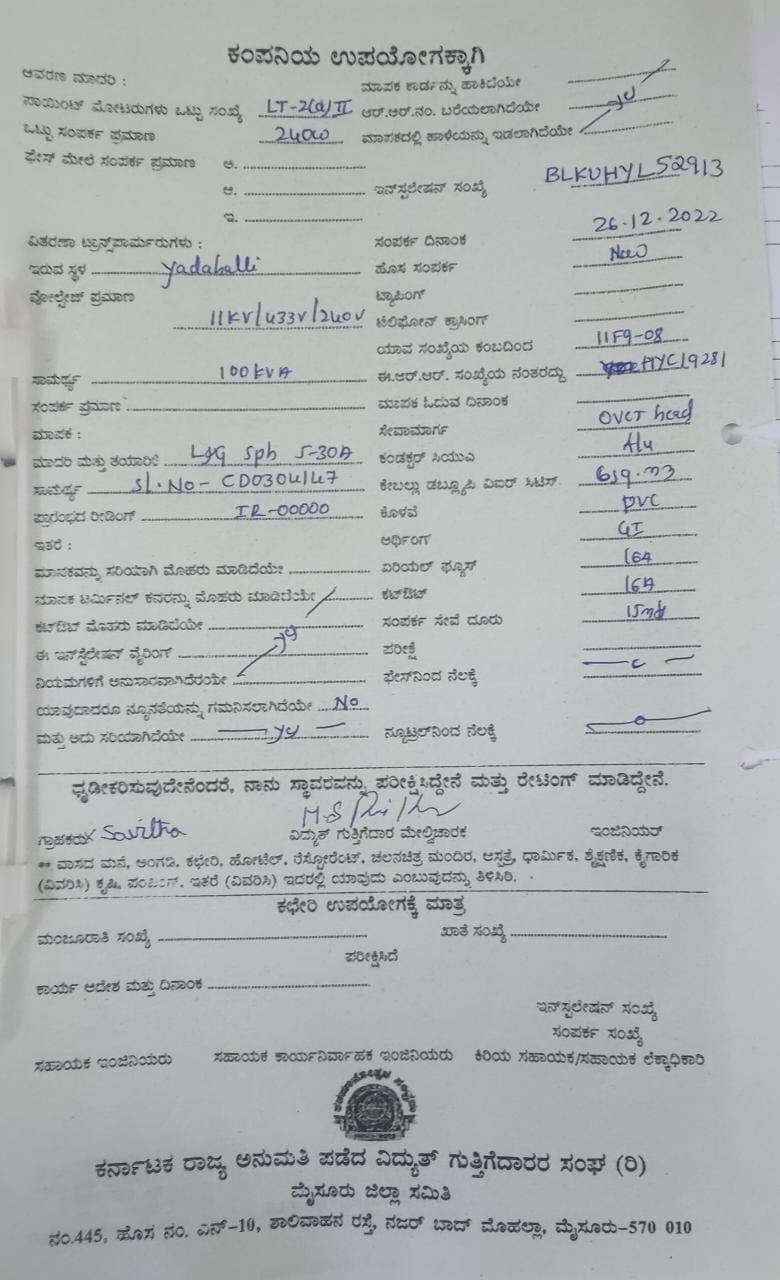 ಕಂಪನಿಯ ಉಪಯೋಗಕ್ಕಾಗಿ
ಆವರಣ ಮಾದರಿ : ಮಾಪಕ ಕಾರ್ಡನ್ನು ಹಾಕಿದೆಯೇ
ಪಾಯಿಂಟ್ ಮೋಟರುಗಳು ಒಟ್ಟು ಸಂಖ್ಯೆ LT-2(a)II ಆರ್.ಆರ್.ನಂ. ಬರೆಯಲಾಗಿದೆಯೇ
ಒಟ್ಟು ಸಂಪರ್ಕ ಪ್ರಮಾಣ 2400 ಮಾಪಕದಲ್ಲಿ ಹಾಳೆಯನ್ನು ಇಡಲಾಗಿದೆಯೇ
ಫೇಸ್ ಮೇಲೆ ಸಂಪರ್ಕ ಪ್ರಮಾಣ ಅ.
ಆ. ಇನ್ಸ್ಟಲೇಷನ್ ಸಂಖ್ಯೆ BLKUHYL52913
ಇ.
ವಿತರಣಾ ಟ್ರಾನ್ಸ್‌ಪಾರ್ಮರುಗಳು : ಸಂಪರ್ಕ ದಿನಾಂಕ 26-12-2022
ಇರುವ ಸ್ಥಳ Yadahalli ಹೊಸ ಸಂಪರ್ಕ New
ವೋಲ್ಟೇಜ್ ಪ್ರಮಾಣ ಟ್ಯಾಪಿಂಗ್
11KV/433V/240V ಟೆಲಿಫೋನ್ ಕ್ರಾಸಿಂಗ್
ಯಾವ ಸಂಖ್ಯೆಯ ಕಂಬದಿಂದ 11F9-08
ಸಾಮರ್ಥ್ಯ 100KVA ಈ.ಆರ್.ಆರ್. ಸಂಖ್ಯೆಯ ನಂತರದ್ದು HYC19281
ಸಂಪರ್ಕ ಪ್ರಮಾಣ ಮಾಪಕ ಓದುವ ದಿನಾಂಕ
ಮಾಪಕ : ಸೇವಾಮಾರ್ಗ Over head
ಮಾದರಿ ಮತ್ತು ತಯಾರಿಕೆ L&G Sph 5-30A ಕಂಡಕ್ಟರ್ ಸಿಯುಎ Alu
ಸಾಮರ್ಥ್ಯ Sl.No- CD0304147 ಕೇಬಲ್ಲು ಡಬ್ಲ್ಯೂಪಿ ವಿಐಆರ್ ಸಿಟಿಸ್. 6sq.m3
ಪ್ರಾರಂಭದ ರೀಡಿಂಗ್ IR-00000 ಕೊಳವೆ PVC
ಇತರೆ : ಅರ್ಥಿಂಗ್ GI
ಮಾನಕವನ್ನು ಸರಿಯಾಗಿ ಮೊಹರು ಮಾಡಿದೆಯೇ ಏರಿಯಲ್ ಫ್ಯೂಸ್ 16A
ಮಾಪಕ ಟರ್ಮಿನಲ್ ಕವರನ್ನು ಮೊಹರು ಮಾಡಿದೆಯೇ ಕಟ್‌ಔಟ್ 16A
ಕಟ್‌ಔಟ್ ಮೊಹರು ಮಾಡಿದೆಯೇ ಸಂಪರ್ಕ ಸೇವೆ ದೂರು
ಈ ಇನ್ಸ್ಟಲೇಶನ್ ವೈರಿಂಗ್ ಪರೀಕ್ಷೆ
ನಿಯಮಗಳಿಗೆ ಅನುಸಾರವಾಗಿದೆಯೇ ಫೇಸ್‌ನಿಂದ ನೆಲಕ್ಕೆ
ಯಾವುದಾದರೂ ನ್ಯೂನತೆಯನ್ನು ಗಮನಿಸಲಾಗಿದೆಯೇ No
ಮತ್ತು ಅದು ಸರಿಯಾಗಿದೆಯೇ ನ್ಯೂಟ್ರಲ್‌ನಿಂದ ನೆಲಕ್ಕೆ
ಧೃಡೀಕರಿಸುವುದೇನೆಂದರೆ, ನಾನು ಸ್ಥಾವರವನ್ನು ಪರೀಕ್ಷಿಸಿದ್ದೇನೆ ಮತ್ತು ರೇಟಿಂಗ್ ಮಾಡಿದ್ದೇನೆ.
ಗ್ರಾಹಕರು x Savitha ವಿದ್ಯುತ್ ಗುತ್ತಿಗೆದಾರ ಮೇಲ್ವಿಚಾರಕ ಇಂಜಿನಿಯರ್
** ವಾಸದ ಮನೆ, ಅಂಗಡಿ, ಕಛೇರಿ, ಹೋಟೆಲ್, ರೆಸ್ಟೋರೆಂಟ್, ಚಲನಚಿತ್ರ ಮಂದಿರ, ಆಸ್ಪತ್ರೆ, ಧಾರ್ಮಿಕ, ಶೈಕ್ಷಣಿಕ, ಕೈಗಾರಿಕೆ
(ವಿವರಿಸಿ) ಕೃಷಿ, ಪಂಪಿಂಗ್, ಇತರೆ (ವಿವರಿಸಿ) ಇದರಲ್ಲಿ ಯಾವುದು ಎಂಬುವುದನ್ನು ತಿಳಿಸಿರಿ.
ಕಛೇರಿ ಉಪಯೋಗಕ್ಕೆ ಮಾತ್ರ
ಮಂಜೂರಾತಿ ಸಂಖ್ಯೆ ಖಾತೆ ಸಂಖ್ಯೆ
ಪರೀಕ್ಷಿಸಿದೆ
ಕಾರ್ಯ ಆದೇಶ ಮತ್ತು ದಿನಾಂಕ
ಇನ್‌ಸ್ಟಲೇಷನ್ ಸಂಖ್ಯೆ
ಸಂಪರ್ಕ ಸಂಖ್ಯೆ
ಸಹಾಯಕ ಇಂಜಿನಿಯರು ಸಹಾಯಕ ಕಾರ್ಯನಿರ್ವಾಹಕ ಇಂಜಿನಿಯರು ಕಿರಿಯ ಸಹಾಯಕ/ಸಹಾಯಕ ಲೆಕ್ಕಾಧಿಕಾರಿ
ಕರ್ನಾಟಕ ರಾಜ್ಯ ಅನುಮತಿ ಪಡೆದ ವಿದ್ಯುತ್ ಗುತ್ತಿಗೆದಾರರ ಸಂಘ (ರಿ)
ಮೈಸೂರು ಜಿಲ್ಲಾ ಸಮಿತಿ
ನಂ.445, ಹೊಸ ನಂ. ಎನ್-10, ಶಾಲಿವಾಹನ ರಸ್ತೆ, ನಜರ್ ಬಾದ್ ಮೊಹಲ್ಲಾ, ಮೈಸೂರು-570 010